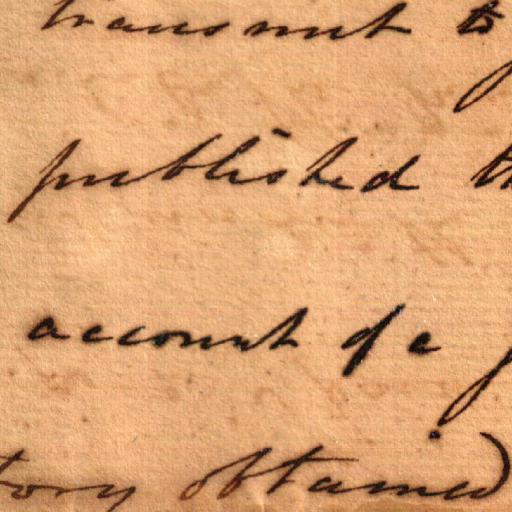 transmit to
published th
account of a
tory obtained